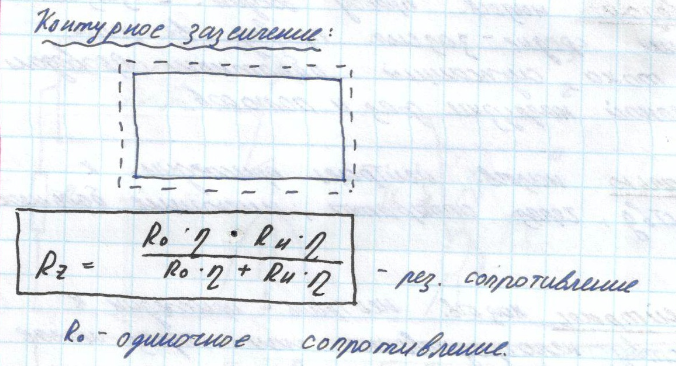 Контурное заземление:
Rz = (R₀·η · Rн·η) / (R₀·η + Rн·η) - рез. сопротивление
R₀ - одиночное сопротивление.